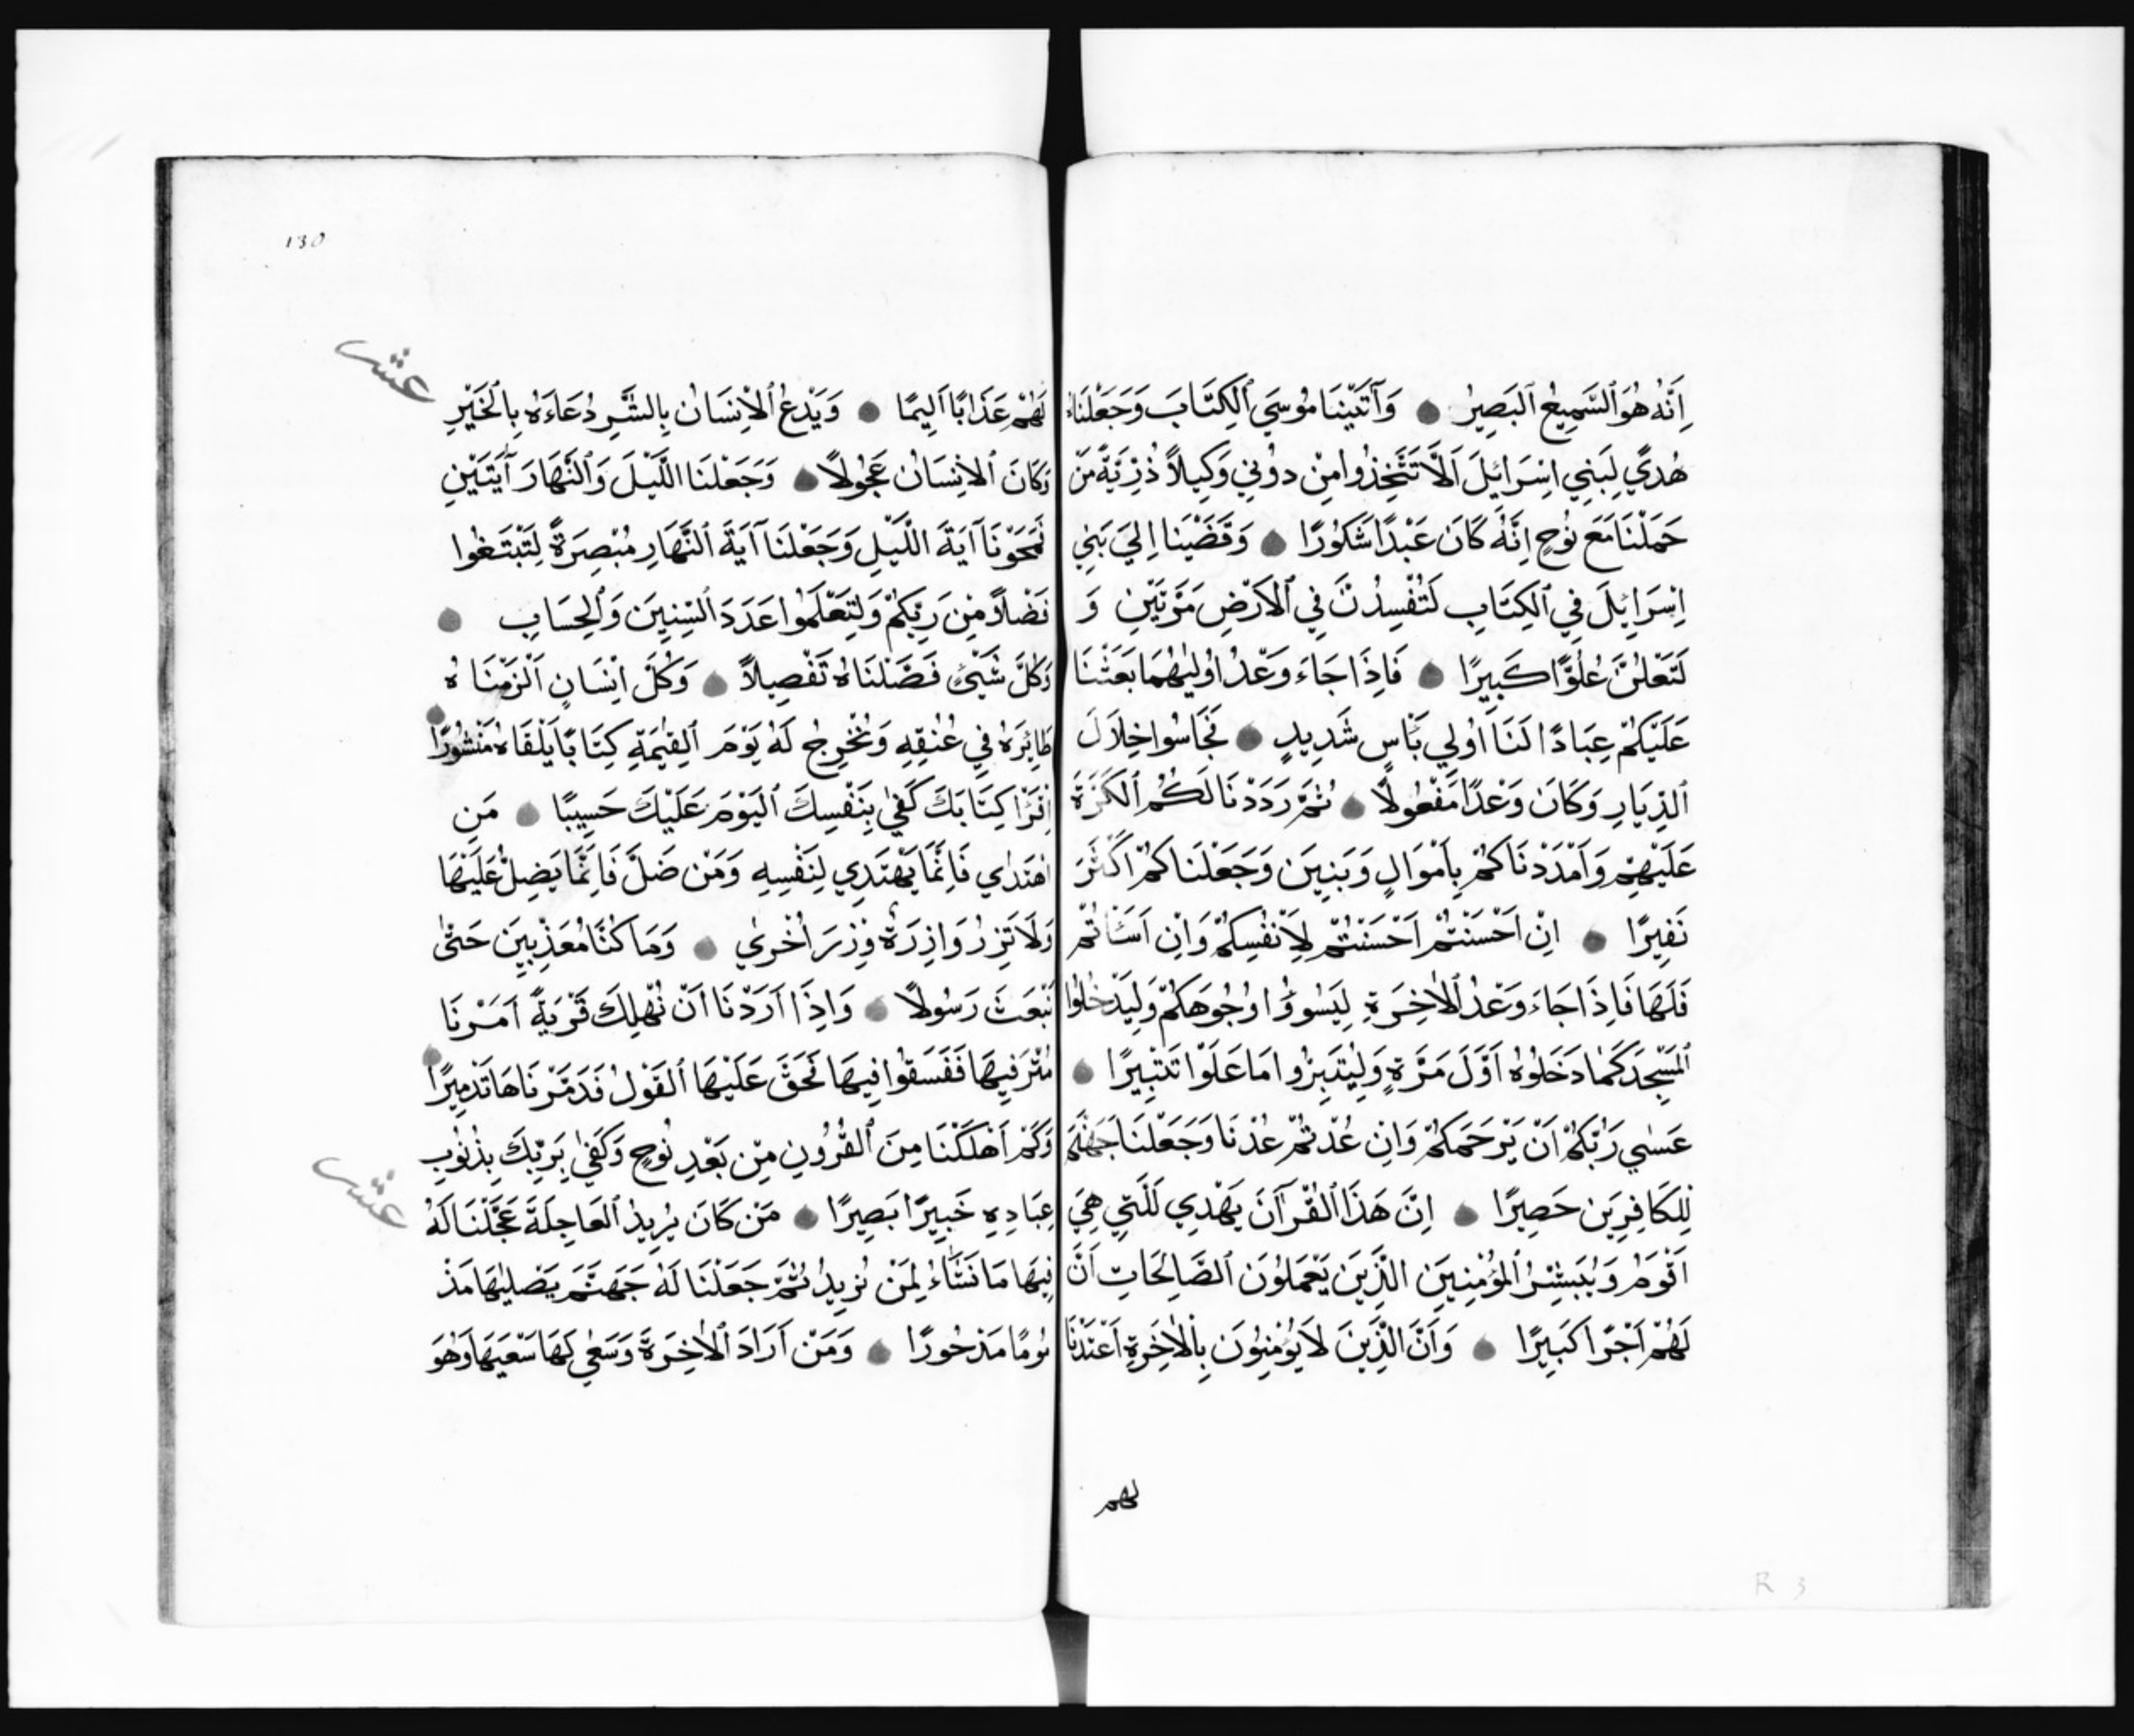 اِنَّهُ هُوَ ٱلسَّمِيعُ ٱلبَصِيرُ ● وَآتَيْنَا مُوسَي ٱلكِتَابَ وَجَعَلْنَاهُ
هُدًي لِبَنِي اِسْرَائِلَ اَلَّا تَتَّخِذُوا مِنْ دوُنِي وَكِيلاً ذُرِّيَّةَ مَنْ
حَمَلْنَا مَعَ نوُحٍ اِنَّهُ كَانَ عَبْدًا شَكوُرًا ● وَقَضَيْنَا اِلَيَ بَنِي
اِسْرَايِٕلَ فِي ٱلكِتَابِ لَتُفْسِدُنَّ فِي ٱلاَرْضِ مَرَّتَيْنِ وَ
لَتَعْلُنَّ عُلُوًّا كَبِيرًا ● فَاِذَا جَاءَ وَعْدُ اوُليٰهُمَا بَعَثْنَا
عَلَيْكُمْ عِبَادًا لَنَا اوُلِي بَأْسٍ شَدِيدٍ ● فَجَاسُوا خِلَالَ
ٱلدِّيَارِ وَكَانَ وَعْدًا مَفْعُولًا ● ثُمَّ رَدَدْنَا لَكُمُ ٱلكَرَّةَ
عَلَيْهِمْ وَاَمْدَدْنَاكُمْ بِاَمْوَالٍ وَبَنِينَ وَجَعَلْنَاكُمْ اَكْثَرَ
نَفِيرًا ● اِنْ اَحْسَنْتُمْ اَحْسَنْتُمْ لِاَنْفُسِكُمْ وَاِنْ اَسَأتُمْ
فَلَهَا فَاِذَا جَاءَ وَعْدُ ٱلاٰخِرَةِ لِيَسُوؤُا وُجُوهَكُمْ وَلِيَدْخُلوُا
ٱلمَسْجِدَ كَمَا دَخَلوُهُ اَوَّلَ مَرَّةٍ وَلِيُتَبِّرُوا مَا عَلَوْا تَتْبِيرًا ●
عَسٰي رَبُّكُمْ اَنْ يَرْحَمَكُمْ وَاِنْ عُدْتُمْ عُدْنَا وَجَعَلْنَا جَهَنَّمَ
لِلكَافِرِينَ حَصِيرًا ● اِنَّ هَذَا ٱلقُرْآنَ يَهْدِي لِلَّتِي هِيَ
اَقْوَمُ وَيُبَشِّرُ ٱلمُؤْمِنِينَ الَّذِينَ يَعْمَلوُنَ ٱلصَّالِحَاتِ اَنَّ
لَهُمْ اَجْرًا كَبِيرًا ● وَاَنَّ الَّذِينَ لاَيُؤْمِنوُنَ بِٱلاٰخِرَةِ اَعْتَدْنَا
لهم
130
عشر
لَهُمْ عَذَابًا اَلِيمًا ● وَيَدْعُ ٱلاِنسَانُ بِالشَّرِ دُعَاءَهُ بِٱلخَيْرِ
وَكَانَ ٱلاِنسَانُ عَجُولاً ● وَجَعَلْنَا اللَّيْلَ وَٱلنَّهَارَ آيَتَيْنِ
فَمَحَوْنَا آيَةَ اللَّيْلِ وَجَعَلْنَا آيَةَ ٱلنَّهَارِ مُبْصِرَةً لِتَبْتَغُوا
فَضْلاً مِنْ رَبِّكُمْ وَلِتَعْلَمُوا عَدَدَ ٱلسِّنِينَ وَٱلحِسَابِ ●
وَكُلَّ شَيْئٍ فَصَّلْنَاهُ تَفْصِيلاً ● وَكُلَّ اِنْسَانٍ اَلْزَمْنَاهُ
طَايِٕرَهُ فِي عُنُقِهِ وَنُخْرِجُ لَهُ يَوْمَ ٱلقِيٰمَةِ كِتَابًا يَلْقَاهُ مَنْشُورًا ●
اِقْرَأْ كِتَابَكَ كَفٰي بِنَفْسِكَ ٱليَوْمَ عَلَيْكَ حَسِيبًا ● مَنِ
اهْتَدٰي فَاِنَّمَا يَهْتَدِي لِنَفْسِهِ وَمَنْ ضَلَّ فَاِنَّمَا يَضِلُّ عَلَيْهَا
وَلَا تَزِرُ وَازِرَةٌ وِزْرَ اُخْرٰي ● وَمَا كُنَّا مُعَذِّبِينَ حَتّٰي
نَبْعَثَ رَسُولاً ● وَاِذَا اَرَدْنَا اَنْ نُهْلِكَ قَرْيَةً اَمَرْنَا
مُتْرَفِيهَا فَفَسَقُوا فِيهَا فَحَقَّ عَلَيْهَا ٱلقَوْلُ فَدَمَّرْنَاهَا تَدْمِيرًا ●
وَكَمْ اَهْلَكْنَا مِنَ ٱلقُرُونِ مِنْ بَعْدِ نوُحٍ وَكَفٰي بِرَبِّكَ بِذُنوُبِ
عشر
عِبَادِهِ خَبِيرًا بَصِيرًا ● مَنْ كَانَ يُرِيدُ ٱلعَاجِلَةَ عَجَّلْنَا لَهُ
فِيهَا مَا نَشَاءُ لِمَنْ نُرِيدُ ثُمَّ جَعَلْنَا لَهُ جَهَنَّمَ يَصْليٰهَا مَذْ
ئوُمًا مَدْحُورًا ● وَمَنْ اَرَادَ ٱلاٰخِرَةَ وَسَعٰي لَهَا سَعْيَهَا وَهُوَ
R 3